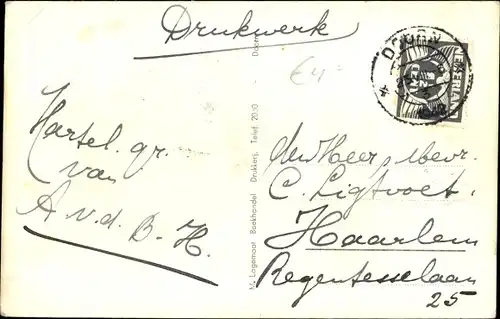 Drukwerk
€4-
DOORN
NEDERLAND
Hartel. gr.
van
A. v. d. B.-H.
M. Lagemaat Boekhandel Drukkerij. Telef. 2030
den Heer, Mevr.
C. Ligtvoet.
Haarlem
Regentesselaan
25